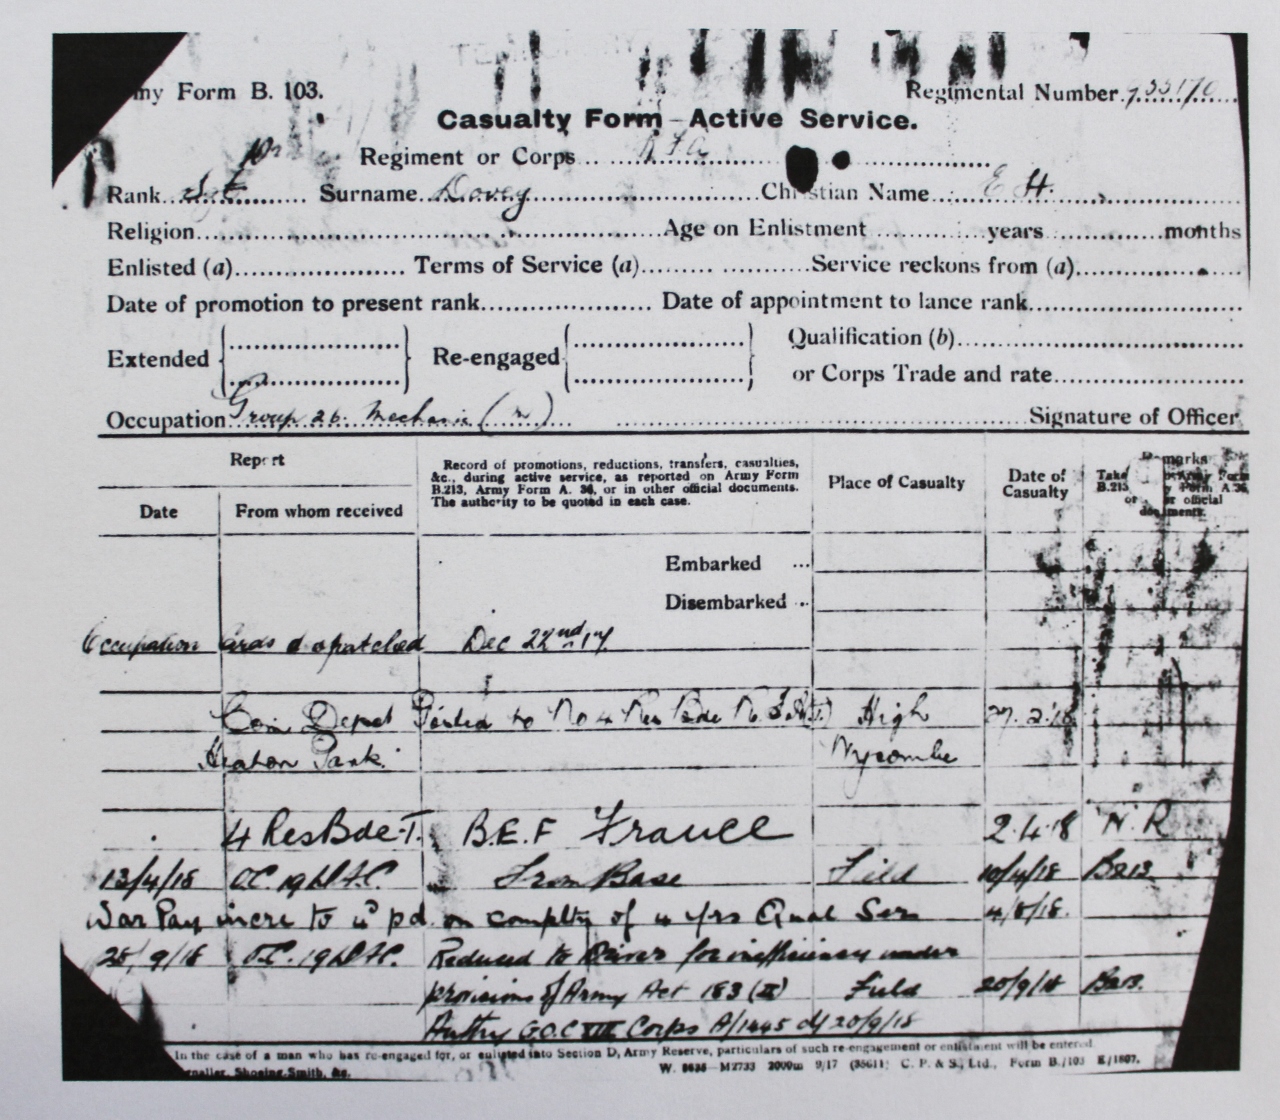 my Form B. 103.
Regimental Number 955170
Casualty Form—Active Service.
Regiment or Corps R F A
Rank Sgt Surname Dovey Christian Name E H.
Religion Age on Enlistment years months
Enlisted (a) Terms of Service (a) Service reckons from (a)
Date of promotion to present rank Date of appointment to lance rank
Extended Re-engaged Qualification (b)
or Corps Trade and rate
Occupation Group 26. Mechanic Signature of Officer
Report
Date
From whom received
Record of promotions, reductions, transfers, casualties,
&c., during active service, as reported on Army Form
B.213, Army Form A. 36, or in other official documents.
The authority to be quoted in each case.
Place of Casualty
Date of
Casualty
Remarks
Take
B.213, Army Form
A. 36,
or official
documents.
Embarked ...
Disembarked ...
Occupation Cards despatched Dec 22nd 17.
Con Depot Posted to No 4 Res Bde R.F.A.(T) High 27.2.18
Heaton Park. Wycombe
4 Res Bde. T. B.E.F France 2.4.18 N.R
13/4/18 OC 19 D.A.C. From Base Field 10/4/18 B213
War Pay incre to pd. on compltg of 4 yrs Qual Ser 4/8/18.
25/9/18 O.C. 19 D.A.C. Reduced to Driver for inefficiency under
provisions of Army Act 183 (II) Field 20/9/18 B213.
Authy G.O.C. Corps A/1445 d/ 20/9/18
In the case of a man who has re-engaged for, or enlisted into Section D, Army Reserve, particulars of such re-engagement or enlistment will be entered
Shoeing-Smith, &c.
W. 8635—M2733 2000m 9/17 (35611) C. P. & S., Ltd., Form B./103 E/1807.